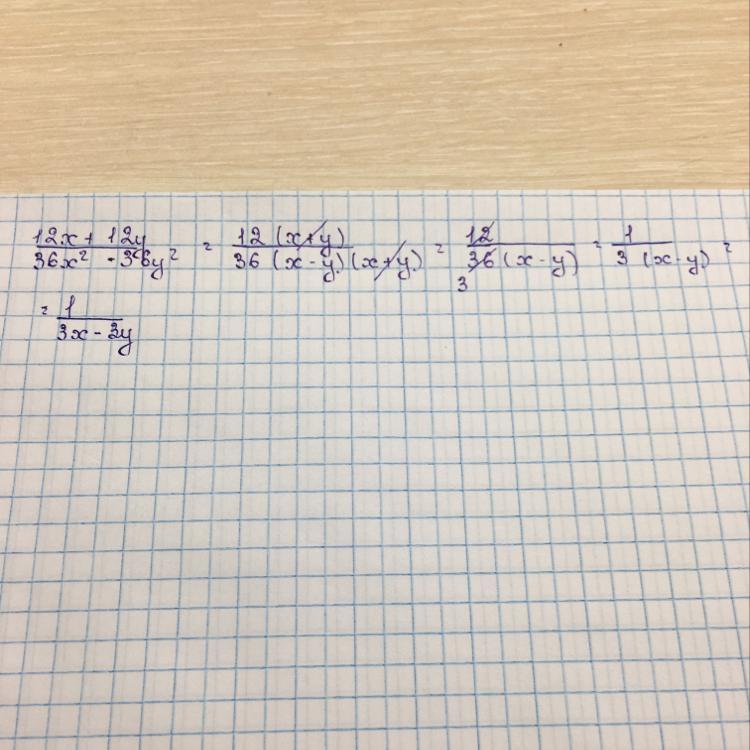 (12x + 12y)/(36x² - 36y²) = (12 (x+y))/(36 (x-y)(x+y)) = 12/(36 (x-y)) 3 = 1/(3 (x-y)) =
= 1/(3x - 3y)